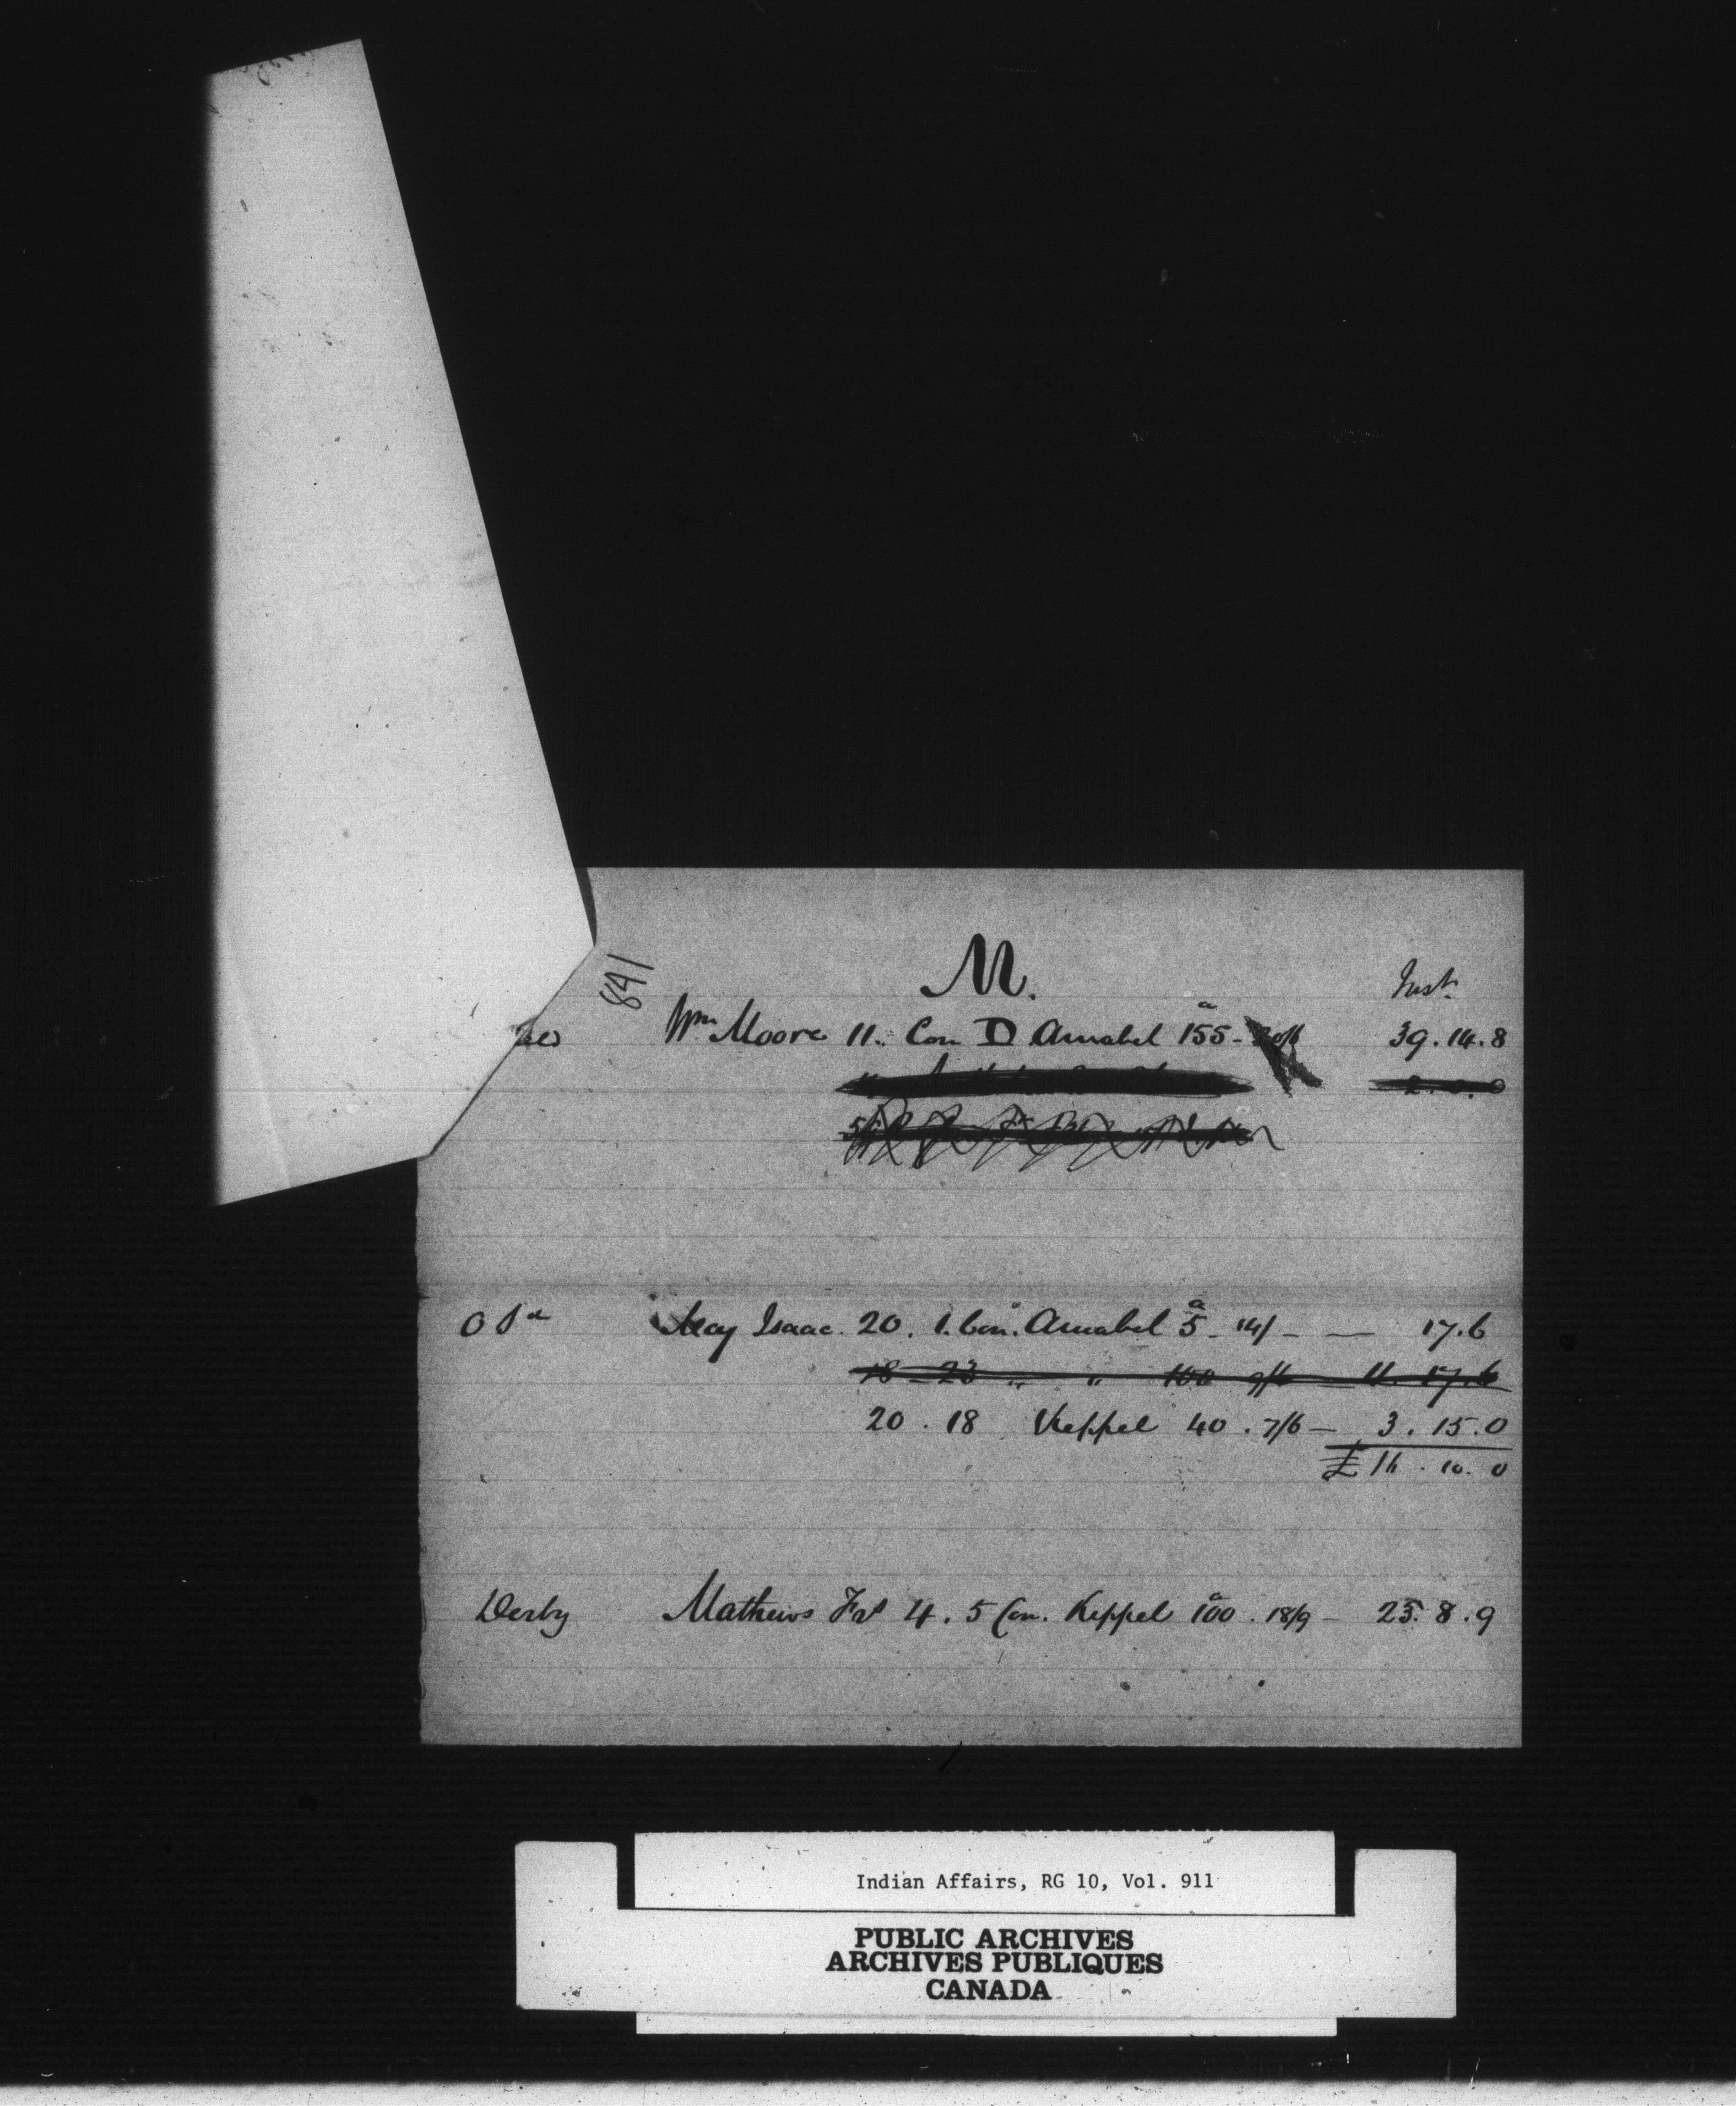 841
M.
Inst.
Wm Moore 11. Con D Amabel 155 - 39.14.8
O Sd May Isaac. 20. 1. Con. Amabel 5 - 14/ - — 17.6
18 - 23 " " 100 9/6 — 11. 17.6
20 . 18 Keppel 40 . 7/6 — 3 . 15.0
£ 16 . 10. 0
Derby Mathews Frs 4 . 5 Con. Keppel 100 . 18/9 - 25. 8 . 9
Indian Affairs, RG 10, Vol. 911
PUBLIC ARCHIVES
ARCHIVES PUBLIQUES
CANADA